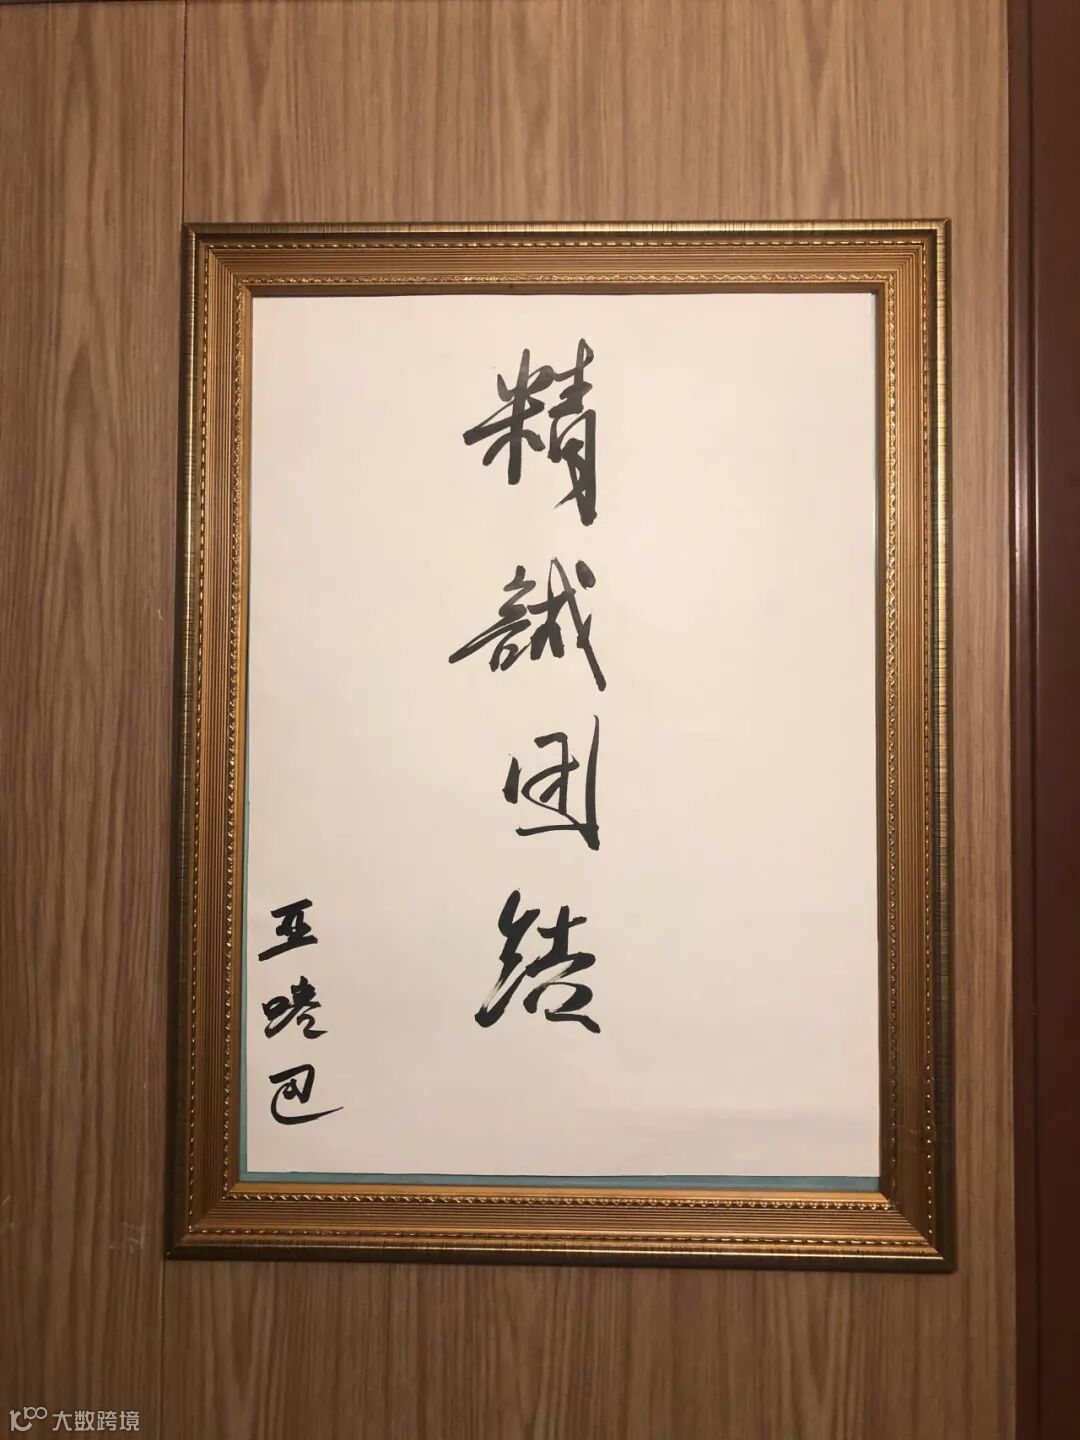 精誠团结
亚
巴
大数跨境